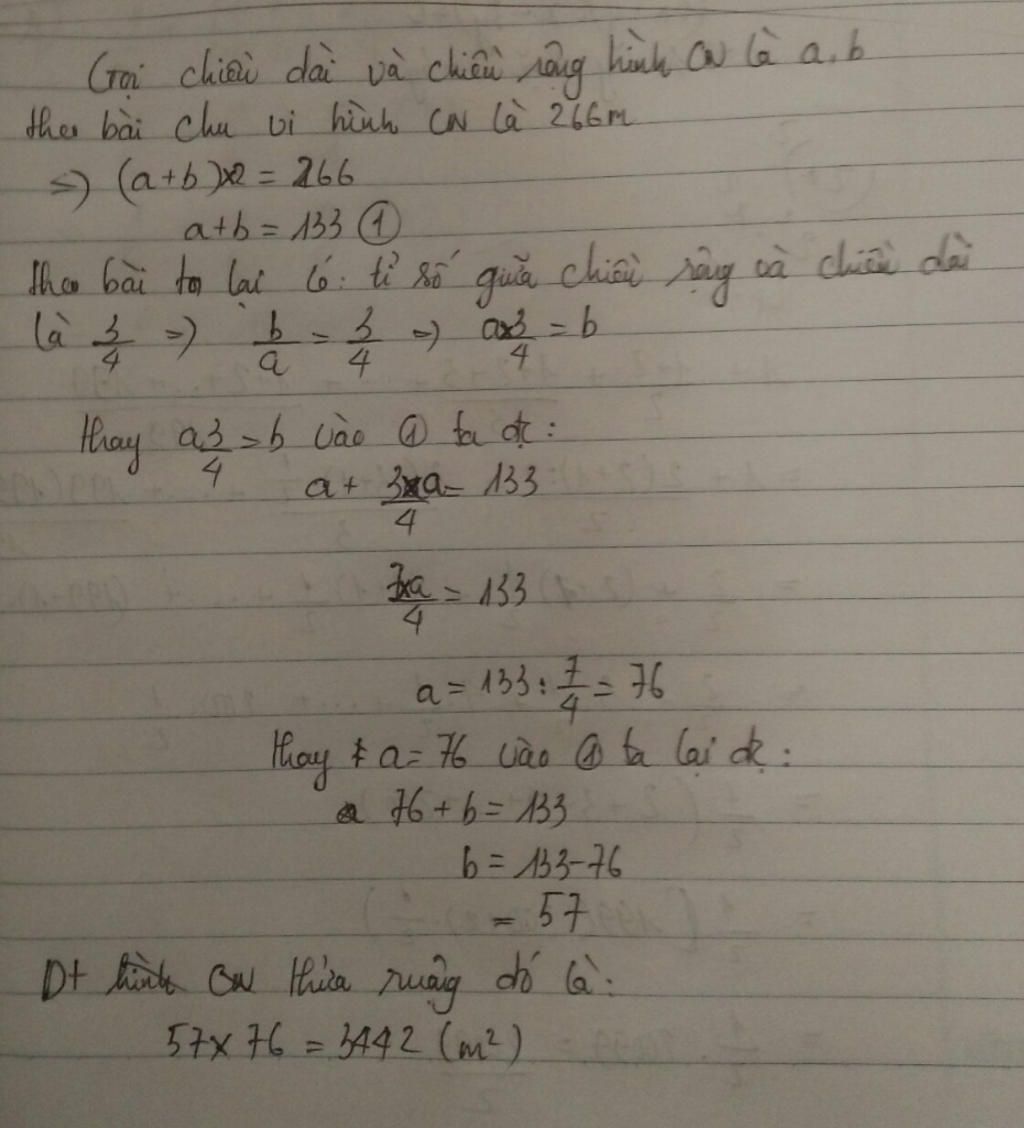 Gọi chiều dài và chiều rộng hình CN là a, b
theo bài chu vi hình CN là 266m
=> (a+b)x2 = 266
a+b = 133 ①
theo bài ta lại có: tỉ số giữa chiều rộng và chiều dài
là 3/4 => b/a = 3/4 => ax3/4 = b
thay a3/4 = b vào ① ta đc:
a + 3xa/4 = 133
7xa/4 = 133
a = 133 : 7/4 = 76
thay a = 76 vào ① ta lại đc:
76 + b = 133
b = 133 - 76
= 57
Dt CN thửa ruộng đó là:
57 x 76 = 3442 (m²)